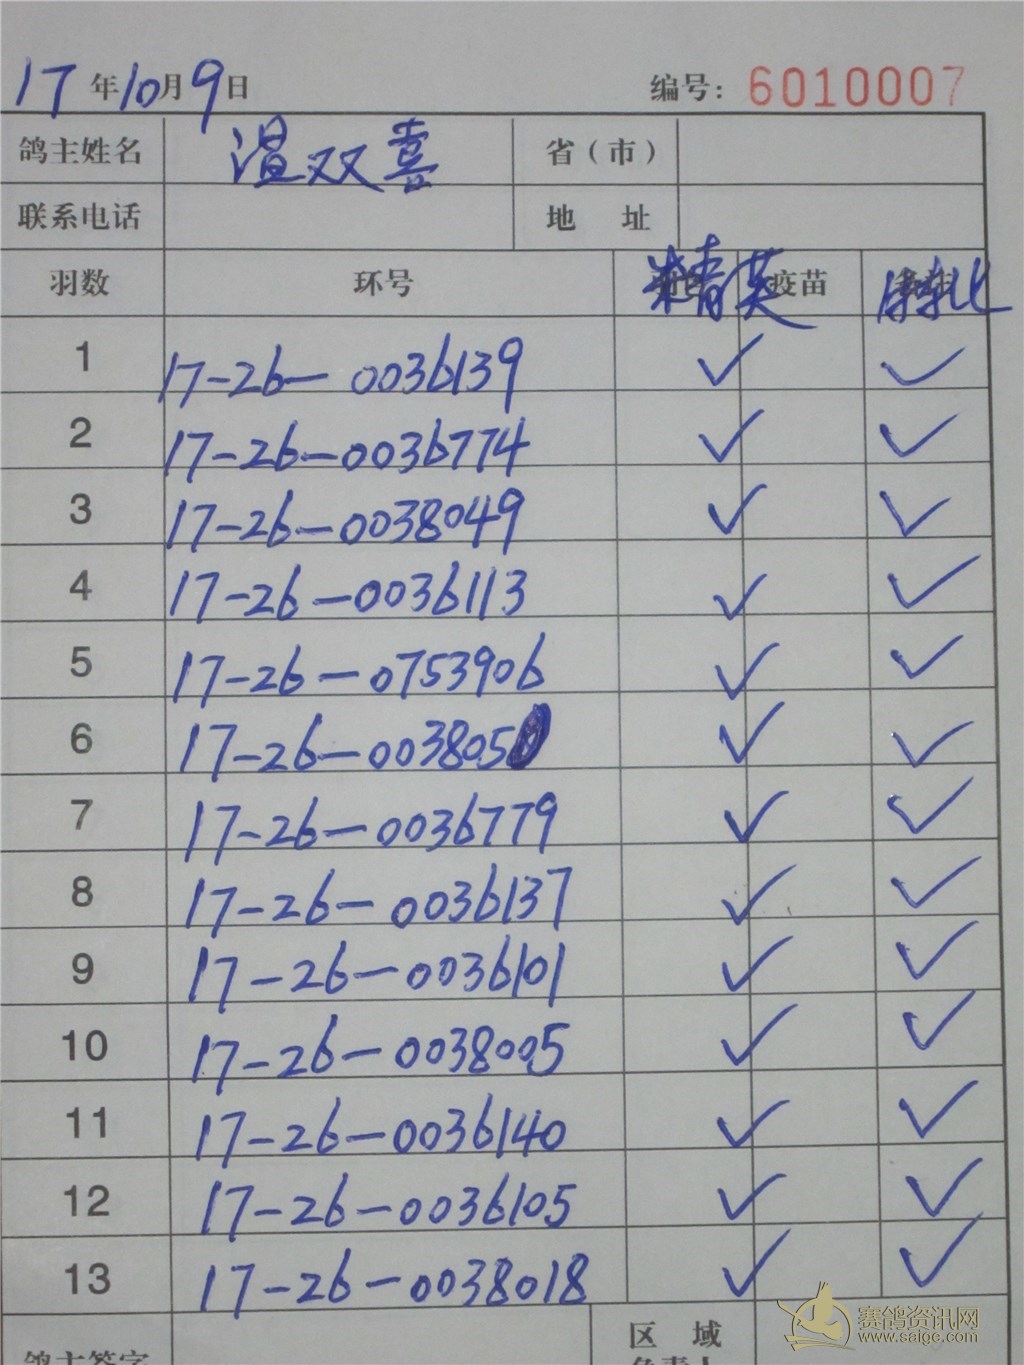 17年10月9日 编号: 6010007
鸽主姓名 温双喜 省(市)
联系电话 地 址
羽数 环号 精英 疫苗
1 17-26-0036139 ✓ ✓
2 17-26-0036774 ✓ ✓
3 17-26-0038049 ✓ ✓
4 17-26-0036113 ✓ ✓
5 17-26-0753906 ✓ ✓
6 17-26-0038050 ✓ ✓
7 17-26-0036779 ✓ ✓
8 17-26-0036137 ✓ ✓
9 17-26-0036101 ✓ ✓
10 17-26-0038005 ✓ ✓
11 17-26-0036140 ✓ ✓
12 17-26-0036105 ✓ ✓
13 17-26-0038018 ✓ ✓
区 域
鸽主签字 负责人
赛鸽资讯网
www.saige.com